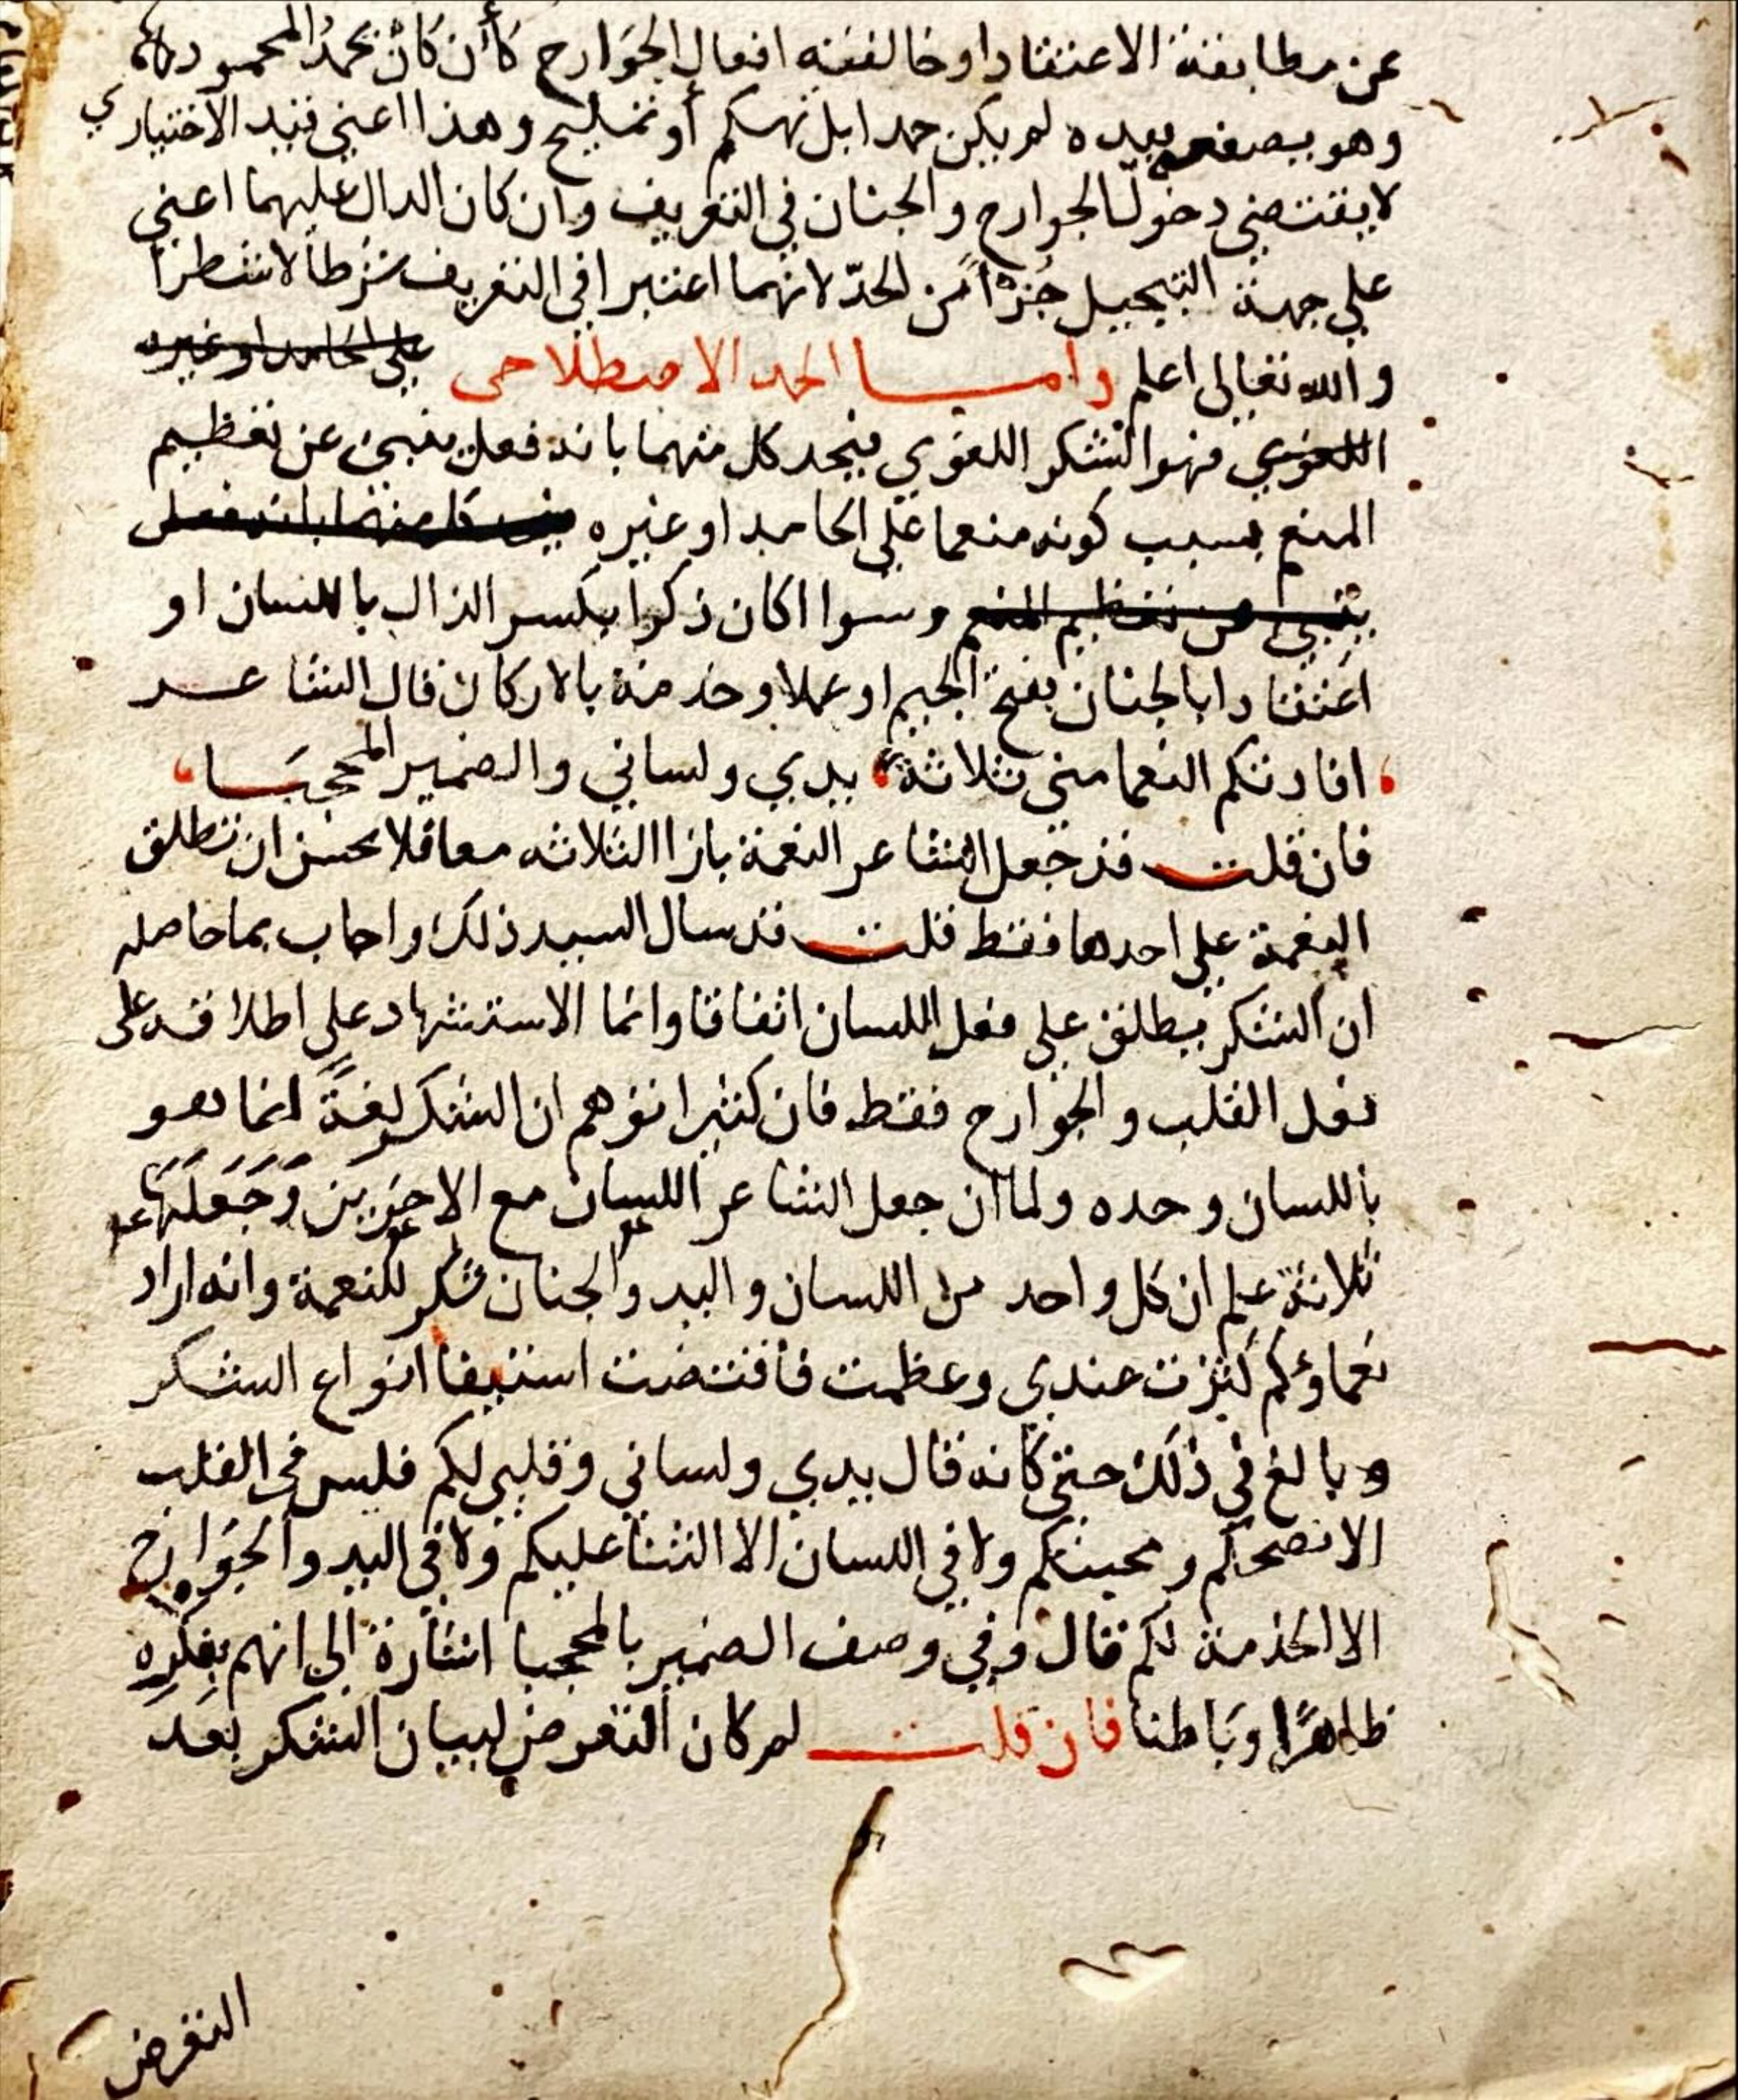 عن مطابقة الاعتقاد او خالفته افعال الجوارح كأن كان يحمد المحمود
وهو يصفعه بيده لم يكن حمدا بل تهكم أو تمليح وهذا اعني قيد الاختياري
لا يقتضي دخول الجوارح والجنان في التعريف وان كان الدال عليهما اعني
علي جهة التبجيل جزءا من الحد لانهما اعتبرا في التعريف شرطا لا شطرا
والله تعالى اعلم وامـا الحمد الاصطلاحى على الحامد او غيره
اللغوي فهو الشكر اللغوي فيحد كل منهما بانه فعل ينبئ عن تعظيم
المنعم بسبب كونه منعما على الحامد او غيره فيحد كل منهما بانه فعل
ينبئ عن تعظيم المنعم وسوا اكان ذكرا بكسر الذال باللسان او
اعتقادا بالجنان بفتح الجيم او عملا وخدمة بالاركان قال الشاعـر
افادتكم النعما منى ثلاثة يدي ولساني والضمير المحجبـا
فان قلت قد جعل الشاعر النعمة بازا الثلاثه معا فلا يحسن ان تطلق
النعمة على احدها فقط قلت قد سال السيد ذلك واجاب بما حاصله
ان الشكر يطلق على فعل اللسان اتفاقا وانما الاستشهاد على اطلاقه على
فعل القلب والجوارح فقط فان كثيرا توهم ان الشكر لغةً انما هو
باللسان وحده ولما ان جعل الشاعر اللسان مع الاخرين وَجَعَلَها
ثلاثة علم ان كل واحد من اللسان واليد والجنان شكر للنعمة وانه اراد
نعماؤكم كثرت عندي وعظمت فاقتضت استيفا انواع الشكر
وبالغ في ذلك حتى كانه قال يدي ولساني وقلبي لكم فليس في القلب
الا نصحكم ومحبتكم ولا في اللسان الا الثنا عليكم ولا في اليد والجوارح
الا الخدمة لكم قال وفي وصف الضمير بالمحجبا اشارة الى انهم
ظاهرًا وباطنا فان قلت لم كان التعرض لبيان الشكر بعد
التعرض